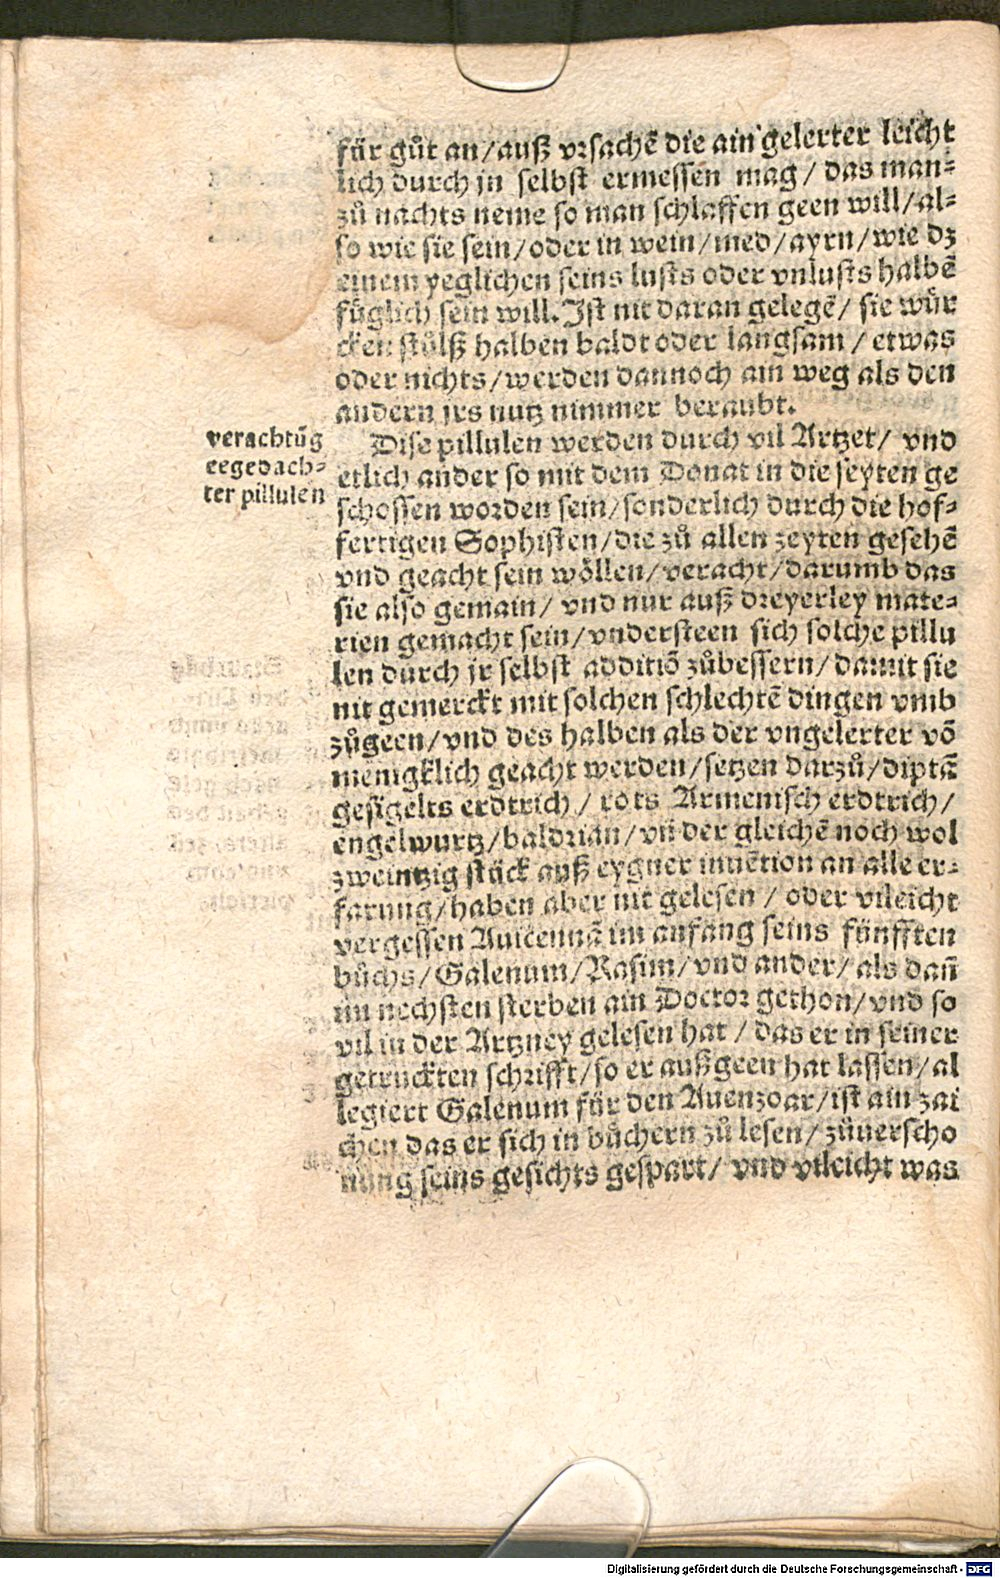 für gůt an/auß vrsachē die ain gelerter leicht
lich durch jn selbst ermessen mag/ das man-
zů nachts neme so man schlaffen geen will/al-
so wie sie sein/oder in wein/med/ayrn/wie dz
einem yeglichen seins lusts oder vnlusts halbē
füglich sein will. Ist nit daran gelegē/ sie wür
cken stůlß halben baldt oder langsam/ etwas
oder nichts/werden dannoch ain weg als den
andern jrs nutz nimmer beraubt.
verachtūg
eegedach-
ter pillulen
Dise pillulen werden durch vil Artzet/ vnd
etlich ander so mit dem Donat in die seyten ge
schossen worden sein/sonderlich durch die hof-
fertigen Sophisten/die zů allen zeyten gesehē
vnd geacht sein wöllen/veracht/darumb das
sie also gemain/ vnd nur auß dreyerley mate-
rien gemacht sein/vndersteen sich solche pillu
len durch jr selbst additiō zůbessern/damit sie
nit gemerckt mit solchen schlechtē dingen vmb
zůgeen/vnd des halben als der vngelerter vō
menigklich geacht werden/setzen darzů/diptā
gesigelts erdtrich/ rots Armenisch erdtrich/
engelwurtz/baldrian/vn̄ der gleichē noch wol
zweintzig stück auß eygner inuētion an alle er-
farung/haben aber nit gelesen/ oder vileicht
vergessen Auicennā im anfang seins fünfften
bůchs/Galenum/Rasim/vnd ander/als dan̄
im nechsten sterben ain Doctor gethon/vnd so
vil in der Artzney gelesen hat/ das er in seiner
getruckten schrifft/so er außgeen hat lassen/al
legiert Galenum für den Auenzoar/ist ain zai
chen das er sich in bůchern zů lesen/zůuerscho
nung seins gesichts gespart/ vnd vileicht was
Digitalisierung gefördert durch die Deutsche Forschungsgemeinschaft - DFG